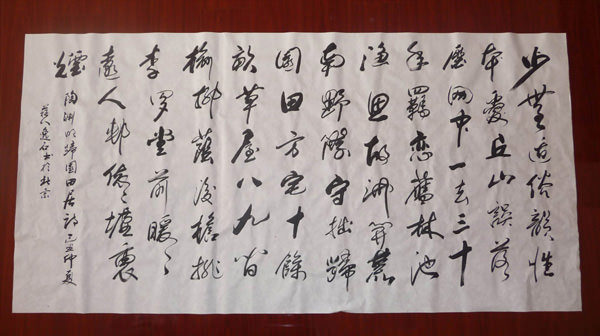 少無適俗韻性
本愛丘山誤落
塵網中一去三十
年羈戀舊林池
漁思故淵開荒
南野際守拙歸
園田方宅十餘
畝草屋八九間
榆柳蔭後檐桃
李羅堂前暖〻
遠人邨依〻墟裏
煙
陶淵明歸園田居詩己丑仲夏
石書於北京